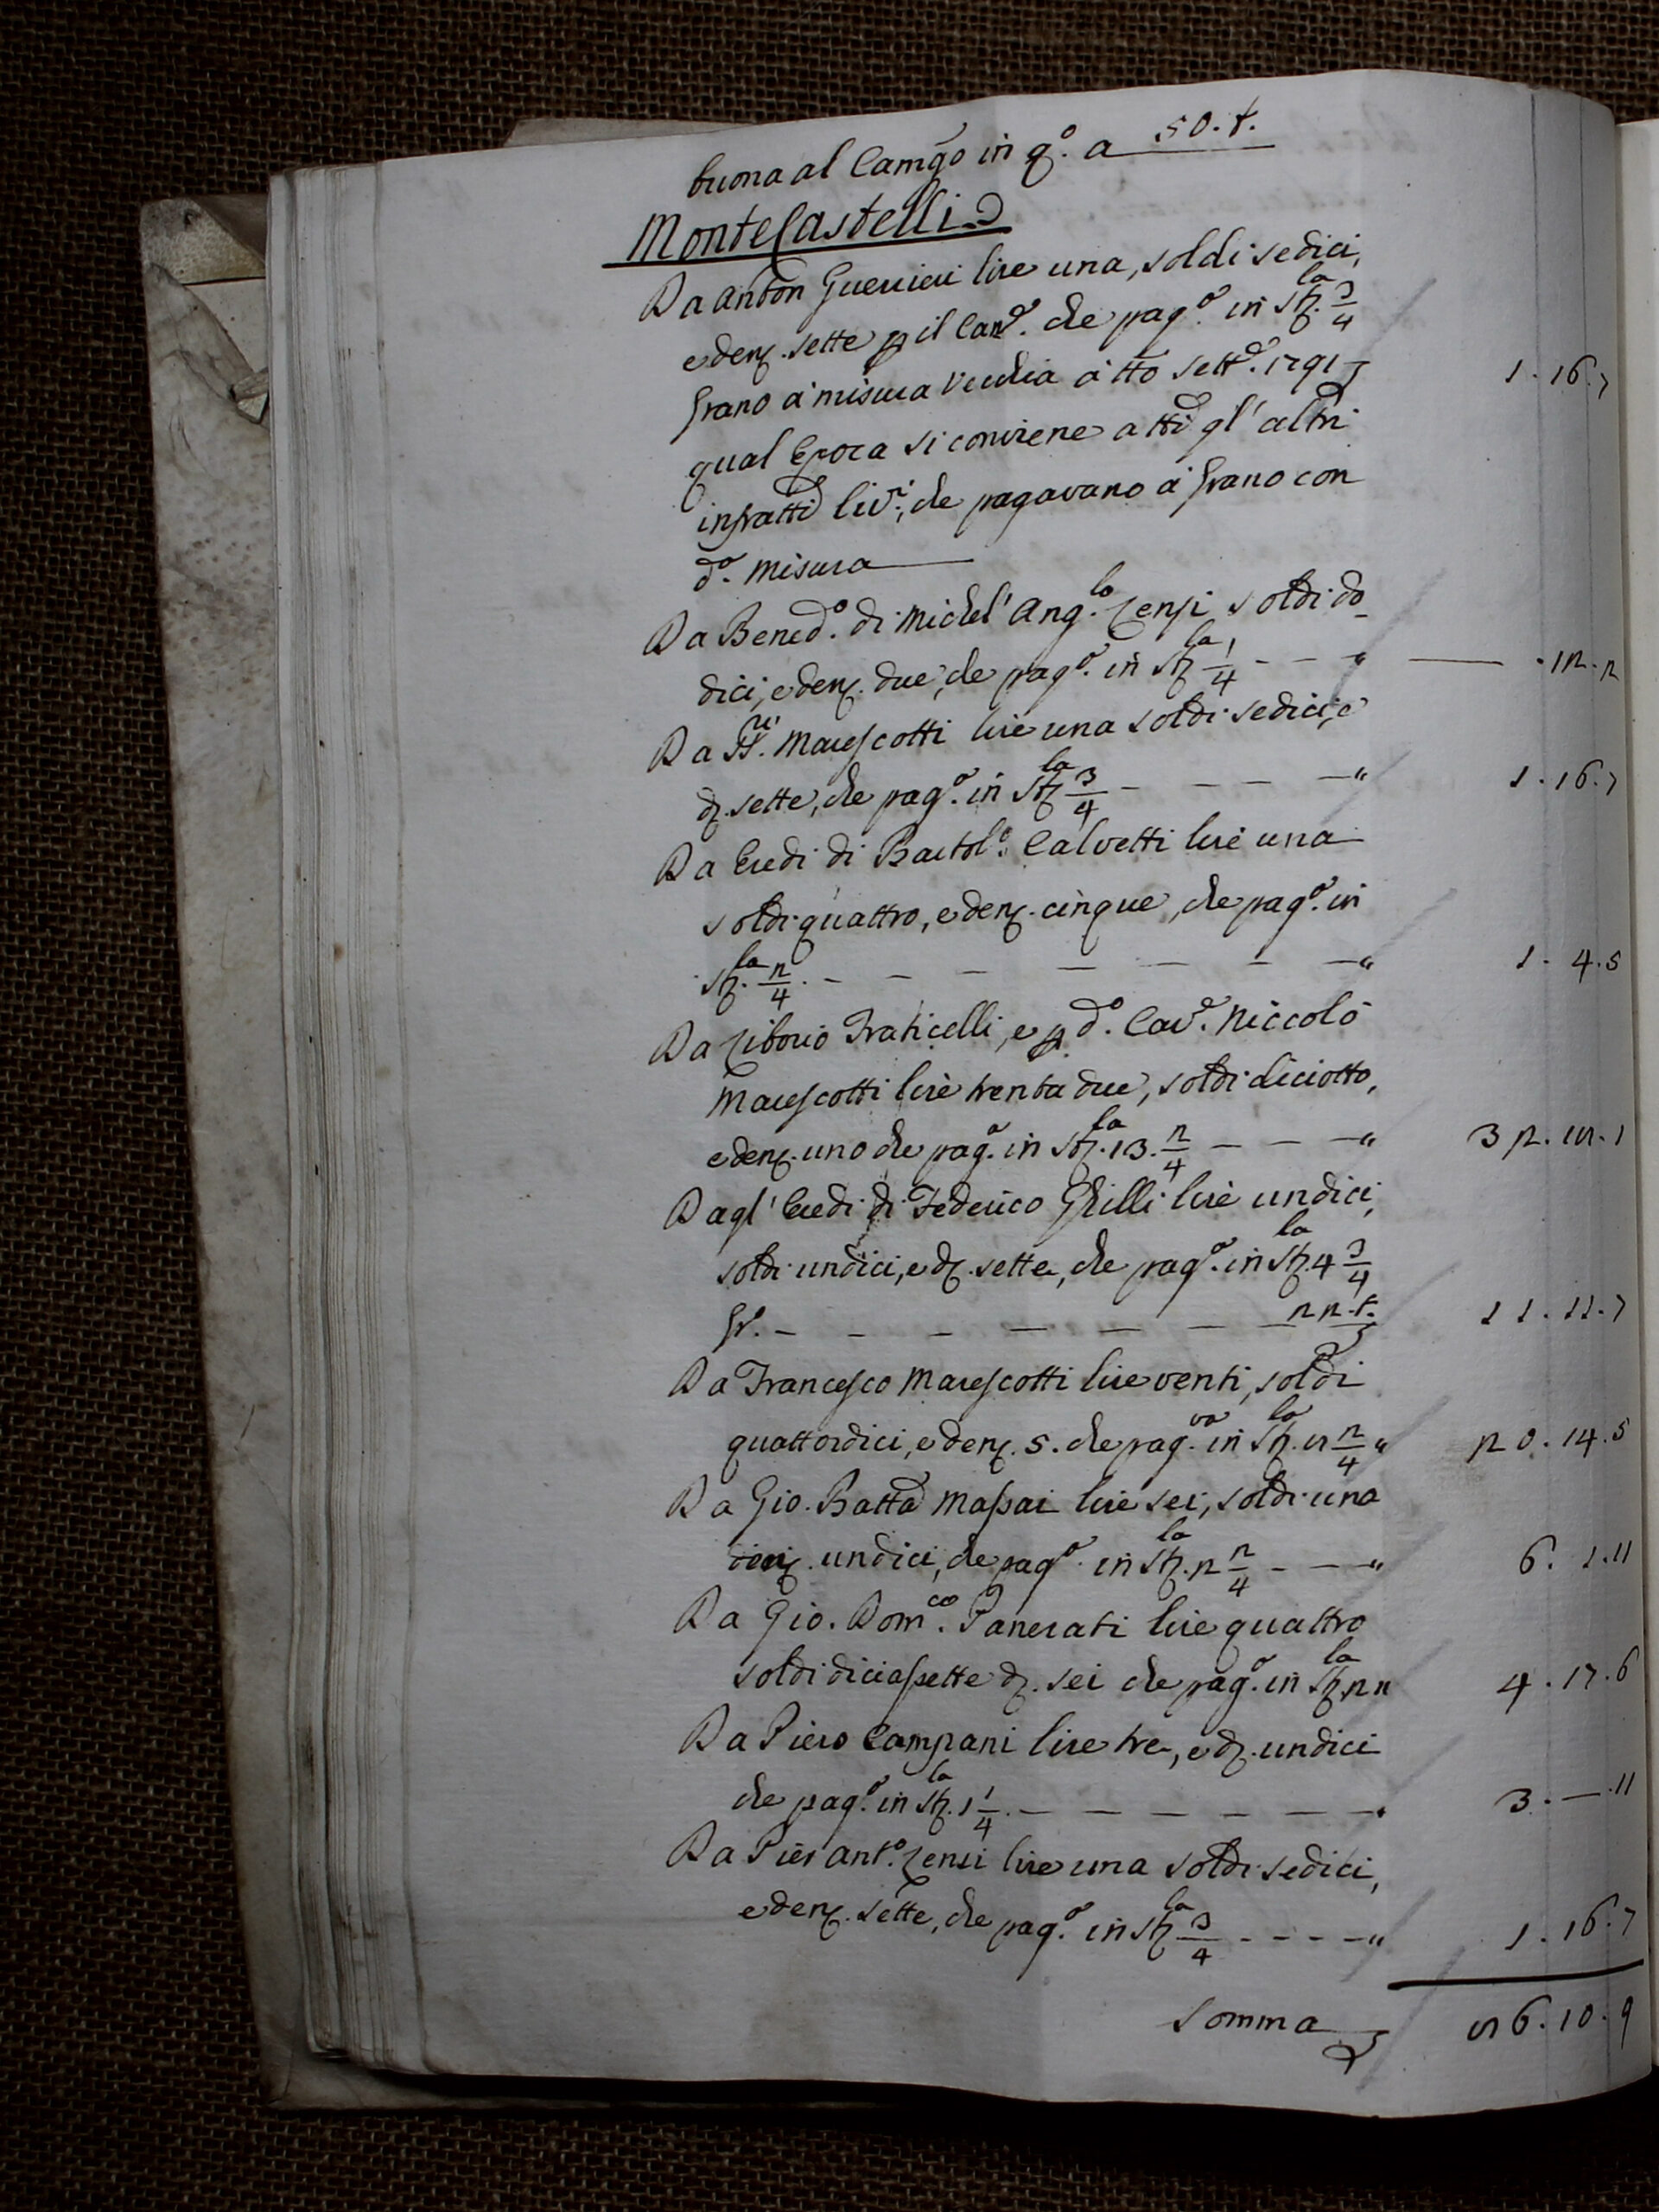 buona al Camgo in qo. a 50.t.
MonteCastelli
Da Anton Guerrieri lire una, soldi sedici,
e denz. sette p il Cane. che paga. in Stla 3/4
Grano a misura Vecchia a tto Sette. 1791 1.16.7
qual Epoca si conviene a tti gl'altri
infratti livri, che pagavano a Grano con
da. misura
Da Bened.o di Michel'Ang.lo Cenzi soldi do-
dici, e denz. due, che paga. in Stla 1/4 - - " — .12.2
Da SS.ri Marescotti lire una soldi sedici, e
dz. sette, che paga. in Stla 3/4 - - - - " 1.16.7
Da Eredi di Bartol.o Calvetti lire una
soldi quattro, e denz. cinque, che paga. in
Stla. 2/4. - - - - - - - " 1.4.5
Da Liborio Fraticelli, e p do. Cave. Niccolò
Marescotti lire trenta due, soldi diciotto,
e denz. uno che paga. in Stla. 13. 2/4 - - - " 32.18.1
Dagl'Eredi di Federico Ghilli lire undici,
soldi undici, e dz. sette, che paga. in Stla. 4 3/4
Gr.o - - - - - - 22.t. 11.11.7
Da Francesco Marescotti lire venti, soldi
quattordici, e denz. 5. che pag.va in Stla. 8 2/4 " 20.14.5
Da Gio. Batta Massai lire sei, soldi una
denz. undici, che paga. in Stla. 2 2/4 - - " 6.1.11
Da Gio. Dom.co Panerati lire quattro
soldi diciassette dz. sei che paga. in Stla. 2 " 4.17.6
Da Piero Campani lire tre, e dz. undici
che paga. in Stla. 1 1/4. - - - - - - " 3.—.11
Da Pier Ant.o Cenzi lire una soldi sedici,
e denz. sette, che paga. in Stla 3/4 - - - - " 1.16.7
Somma 86.10.9